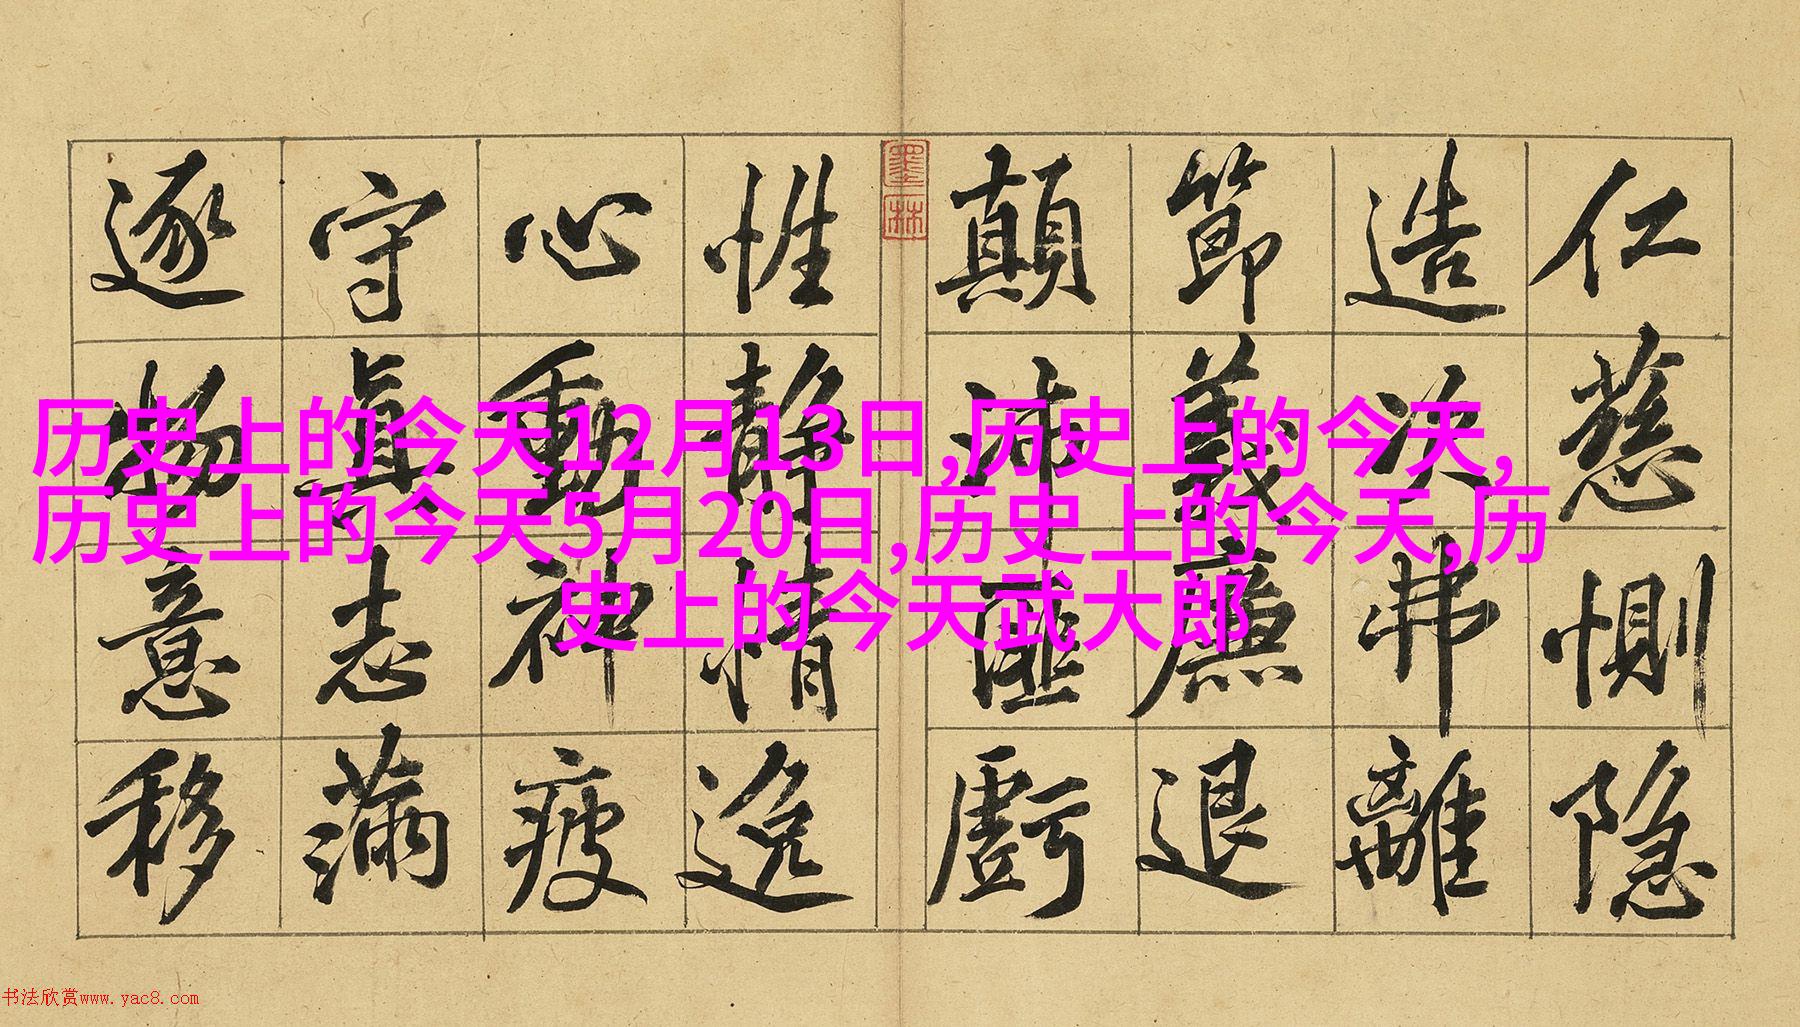 仁慈惻隐
造次弗離
節義廉退
顛沛匪虧
性静情逸
心動神疲
守真志满
逐物意移
墨林
历史上的今天12月13日,历史上的今天,
历史上的今天5月20日,历史上的今天,历
史上的今天武大郎
书法欣赏www.yac8.com